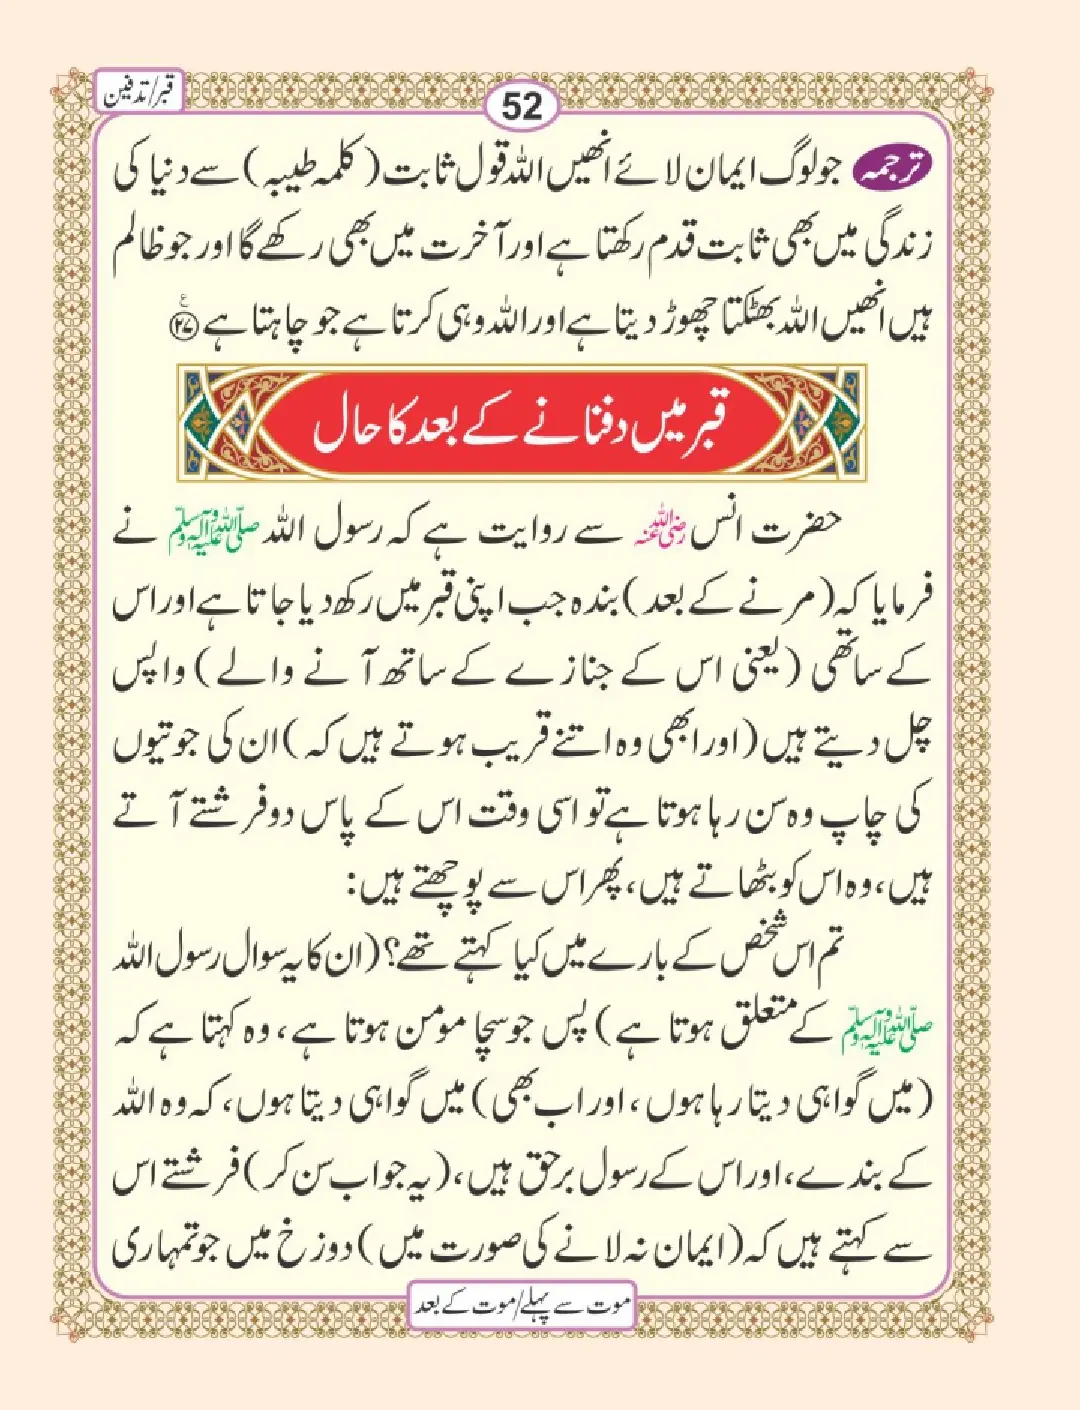 قبر/تدفین
52
ترجمہ جو لوگ ایمان لائے انھیں اللہ قول ثابت (کلمہ طیبہ) سے دنیا کی
زندگی میں بھی ثابت قدم رکھتا ہے اور آخرت میں بھی رکھے گا اور جو ظالم
ہیں انھیں اللہ بھٹکتا چھوڑ دیتا ہے اور اللہ وہی کرتا ہے جو چاہتا ہے ۲۷ ع
قبر میں دفنانے کے بعد کا حال
حضرت انس رضی اللہ عنہ سے روایت ہے کہ رسول اللہ صلی اللہ علیہ وآلہ وسلم نے
فرمایا کہ (مرنے کے بعد) بندہ جب اپنی قبر میں رکھ دیا جاتا ہے اور اس
کے ساتھی (یعنی اس کے جنازے کے ساتھ آنے والے) واپس
چل دیتے ہیں (اور ابھی وہ اتنے قریب ہوتے ہیں کہ) ان کی جوتیوں
کی چاپ وہ سن رہا ہوتا ہے تو اسی وقت اس کے پاس دو فرشتے آتے
ہیں، وہ اس کو بٹھاتے ہیں، پھر اس سے پوچھتے ہیں:
تم اس شخص کے بارے میں کیا کہتے تھے؟ (ان کا یہ سوال رسول اللہ
صلی اللہ علیہ وآلہ وسلم کے متعلق ہوتا ہے) پس جو سچا مومن ہوتا ہے، وہ کہتا ہے کہ
(میں گواہی دیتا رہا ہوں، اور اب بھی) میں گواہی دیتا ہوں، کہ وہ اللہ
کے بندے، اور اس کے رسول برحق ہیں، (یہ جواب سن کر) فرشتے اس
سے کہتے ہیں کہ (ایمان نہ لانے کی صورت میں) دوزخ میں جو تمہاری
موت سے پہلے/موت کے بعد